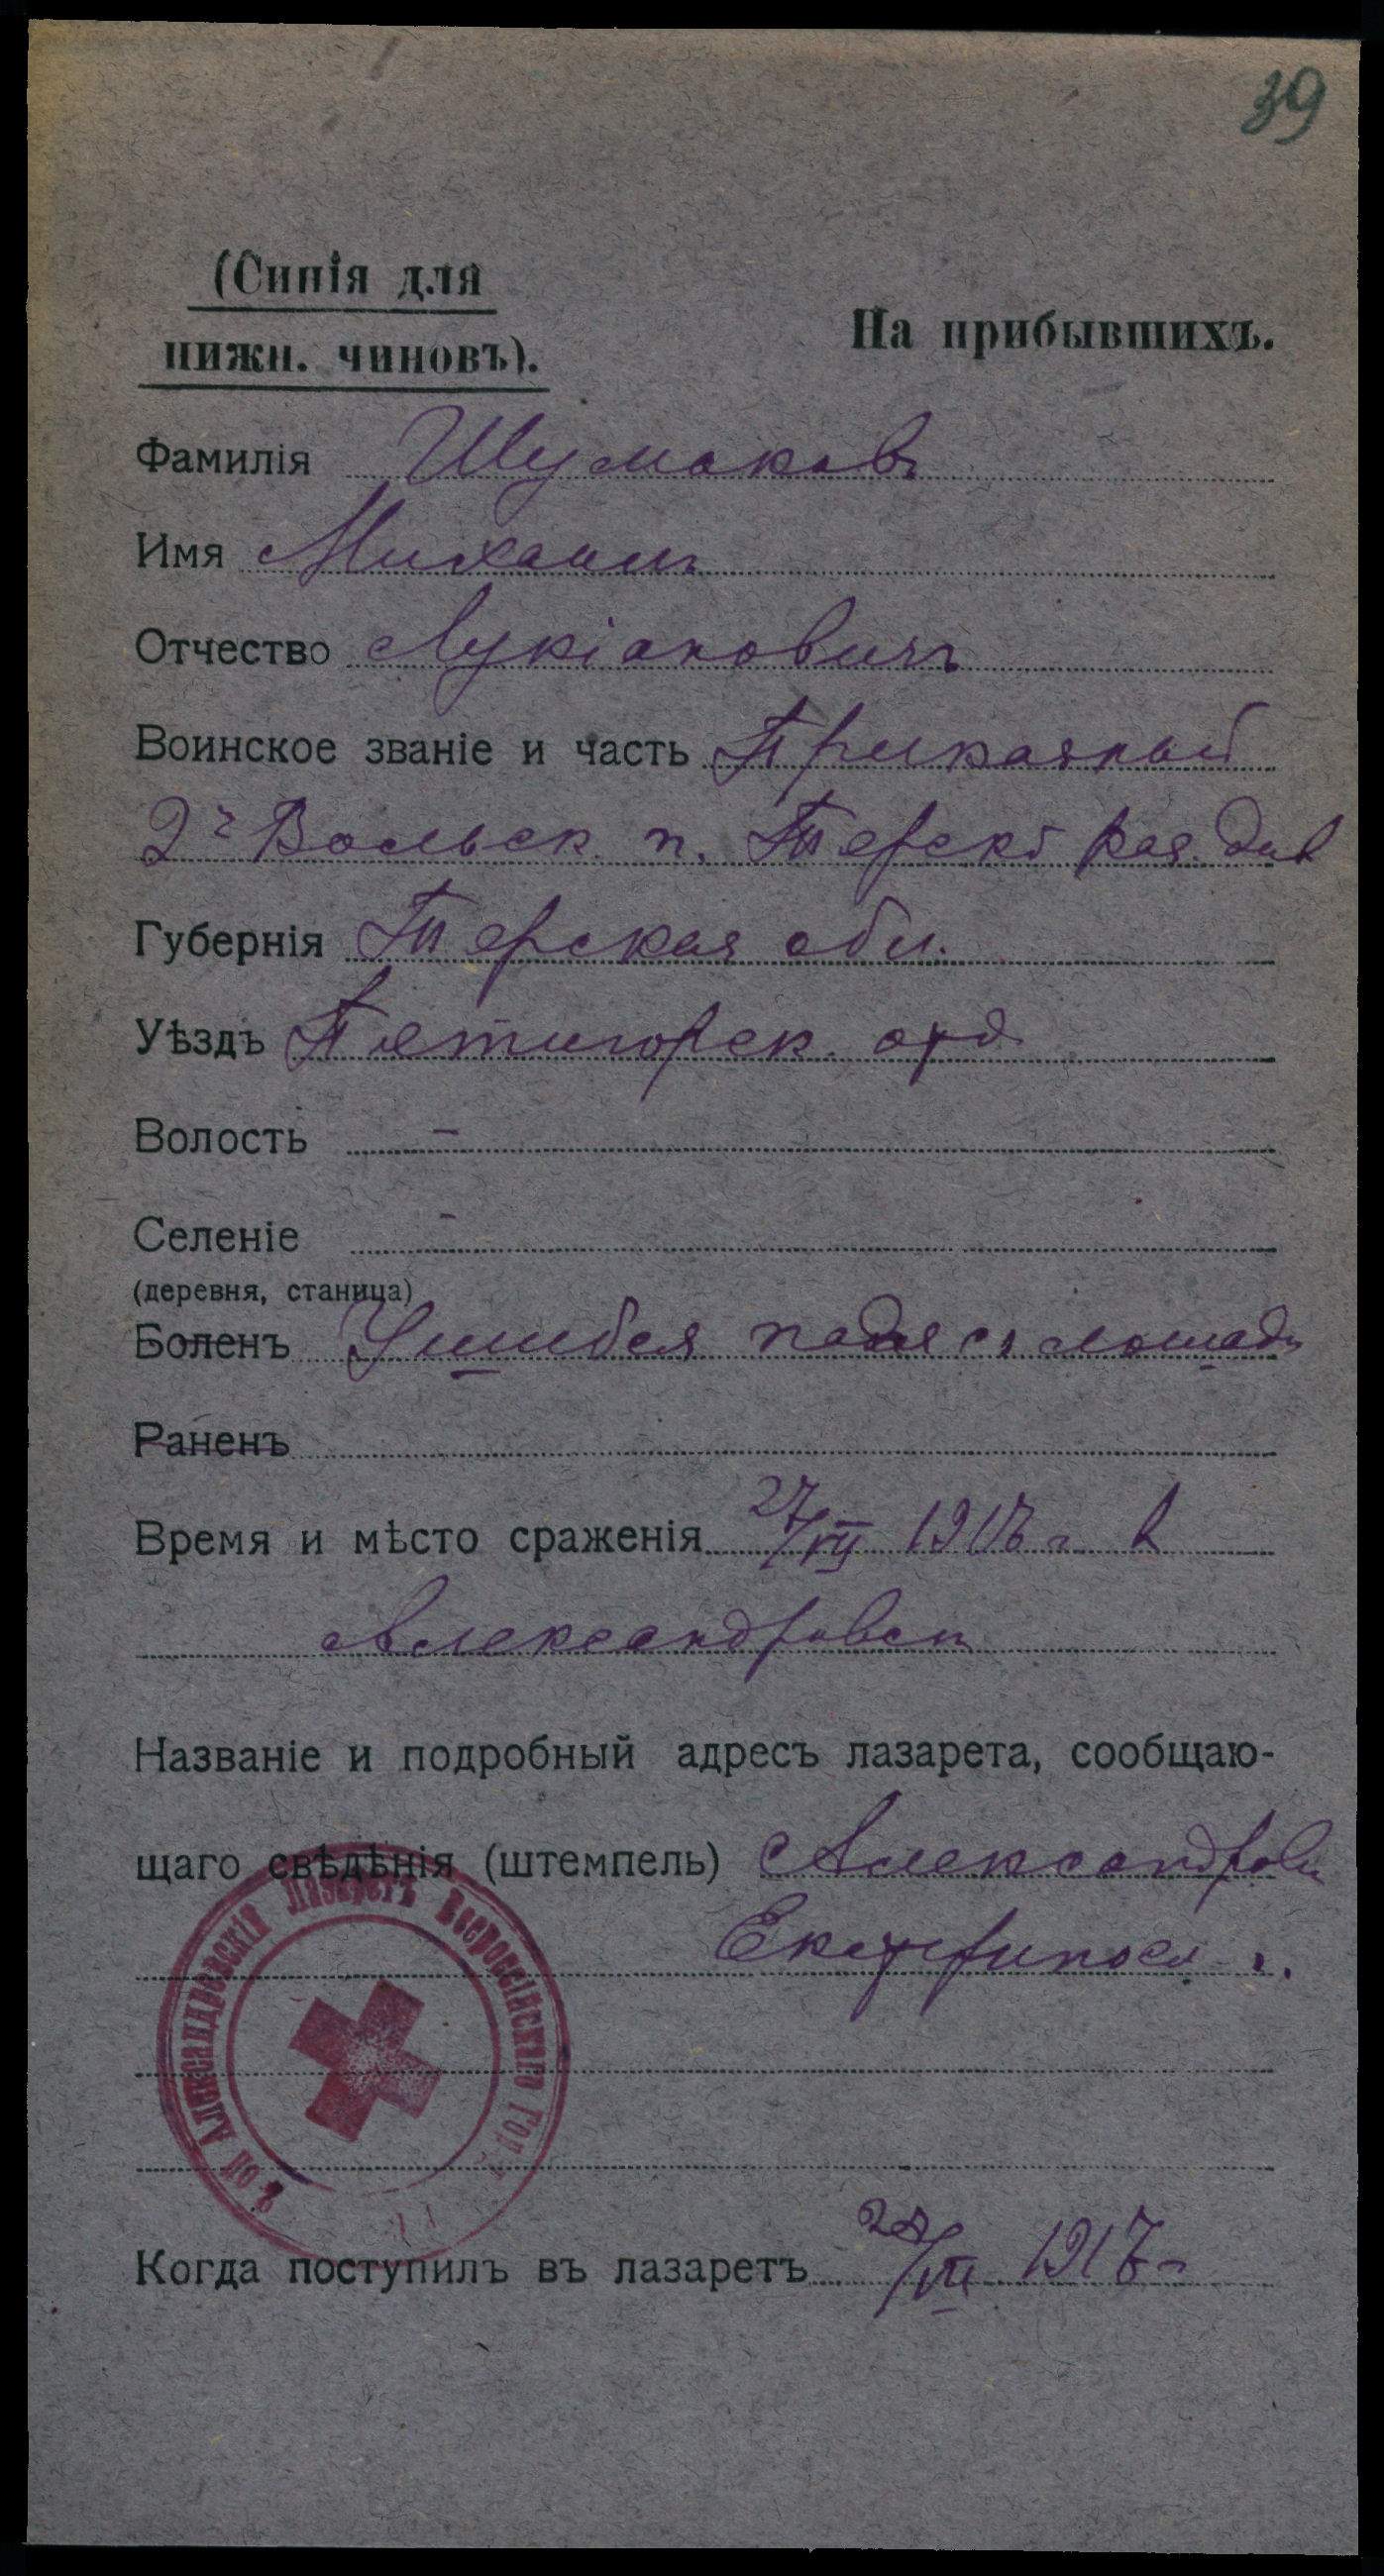 39
(Синія для
нижн. чиновъ).
На прибывшихъ.
Фамилія Шумаковъ
Имя Михаилъ
Отчество Лукіановичъ
Воинское званіе и часть Приказный
2й Вольск. п. Терско каз. див
Губернія Терская обл.
Уѣздъ Пятигорск. отд
Волость -
Селеніе -
(деревня, станица)
Боленъ Ушибся падая съ лошади
Раненъ
Время и мѣсто сраженія 27/VII 1917 г. в
Александровск
Названіе и подробный адресъ лазарета, сообщаю-
щаго свѣдѣнія (штемпель) Александровск
Екатриносл. г.
Александровскій Лазаретъ Всероссійскаго Гор.
Когда поступилъ въ лазаретъ 28/VII 1917 г